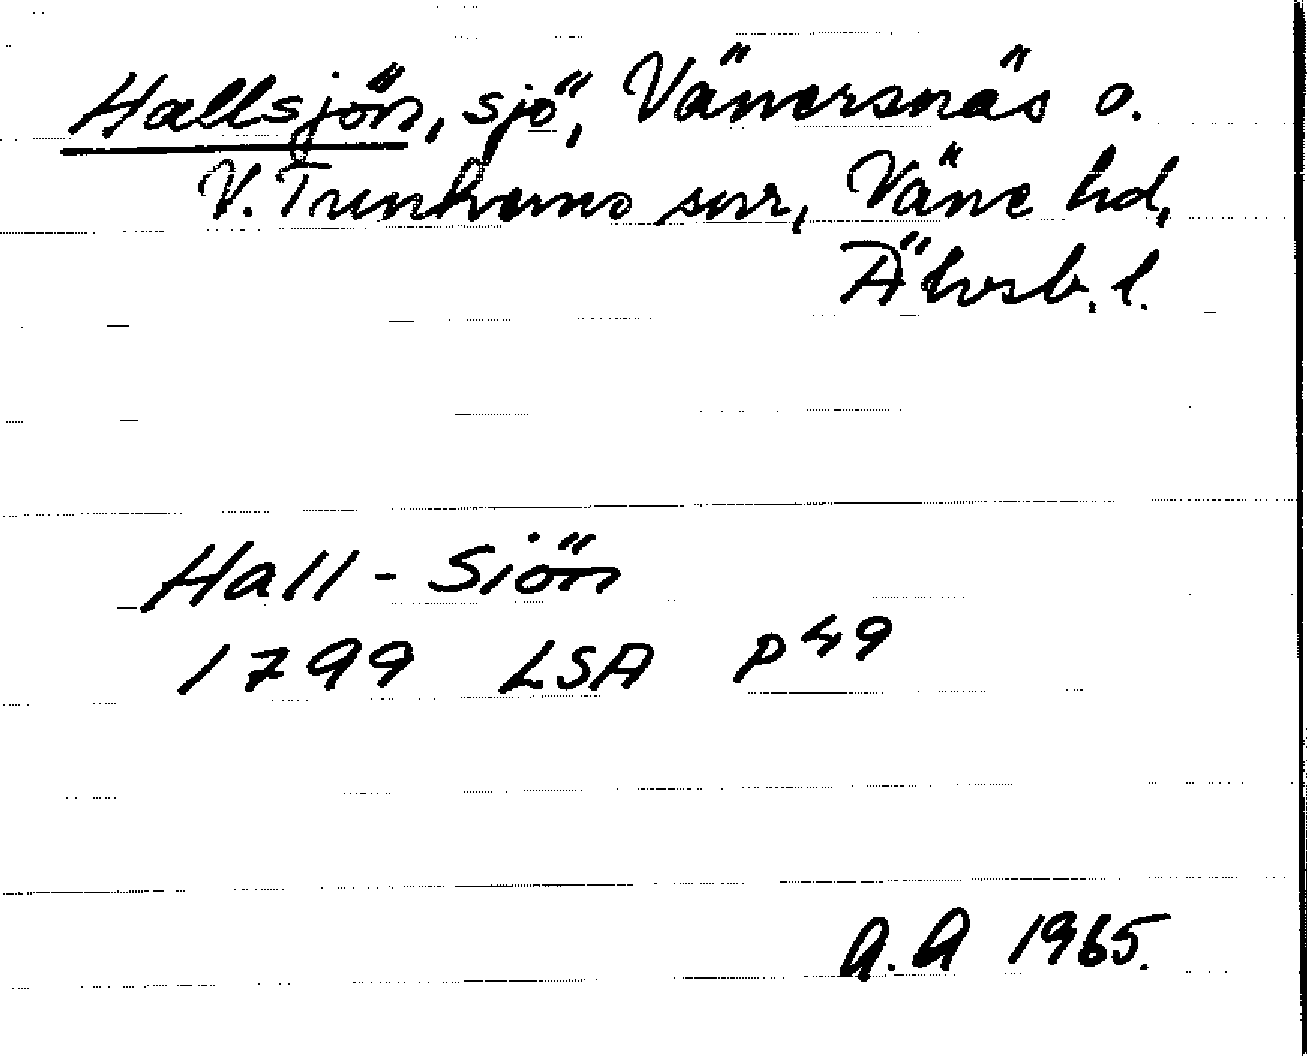 Hallsjön, sjö, Vänersnäs o.
V. Tunhems snr, Väne hd,
Älvsb. l.
Hall-Siön
1799 LSA P49
A.A 1965.